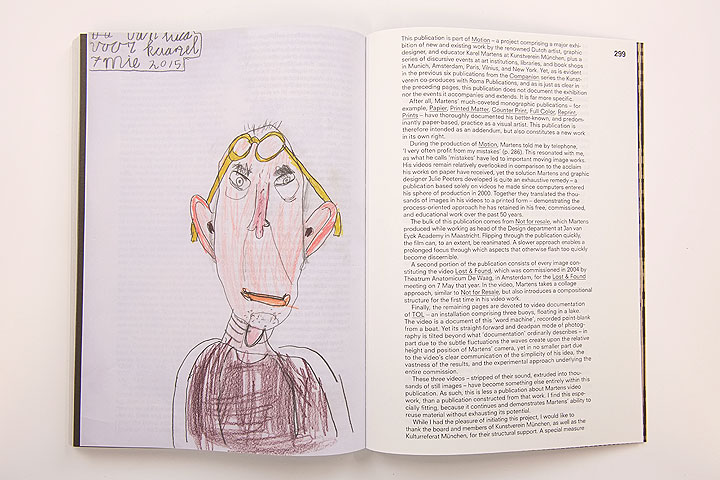 voor karel
7 mie 2015
299
This publication is part of Motion – a project comprising a major exhi-
bition of new and existing work by the renowned Dutch artist, graphic
designer, and educator Karel Martens at Kunstverein München, plus a
series of discursive events at art institutions, libraries, and book shops
in Munich, Amsterdam, Paris, Vilnius, and New York. Yet, as is evident
in the previous six publications from the Companion series the Kunst-
verein co-produces with Roma Publications, and as is just as clear in
the preceding pages, this publication does not document the exhibition
nor the events it accompanies and extends. It is far more specific.
After all, Martens' much-coveted monographic publications – for
example, Papier, Printed Matter, Counter Print, Full Color, Reprint,
Prints – have thoroughly documented his better-known, and predom-
inantly paper-based, practice as a visual artist. This publication is
therefore intended as an addendum, but also constitutes a new work
in its own right.
During the production of Motion, Martens told me by telephone,
'I very often profit from my mistakes' (p. 286). This resonated with me,
as what he calls 'mistakes' have led to important moving image works.
His videos remain relatively overlooked in comparison to the acclaim
his works on paper have received, yet the solution Martens and graphic
designer Julie Peeters developed is quite an exhaustive remedy – a
publication based solely on videos he made since computers entered
his sphere of production in 2000. Together they translated the thou-
sands of images in his videos to a printed form – demonstrating the
process-oriented approach he has retained in his free, commissioned,
and educational work over the past 50 years.
The bulk of this publication comes from Not for resale, which Martens
produced while working as head of the Design department at Jan van
Eyck Academy in Maastricht. Flipping through the publication quickly,
the film can, to an extent, be reanimated. A slower approach enables a
prolonged focus through which aspects that otherwise flash too quickly
become discernible.
A second portion of the publication consists of every image con-
stituting the video Lost & Found, which was commissioned in 2004 by
Theatrum Anatomicum De Waag, in Amsterdam, for the Lost & Found
meeting on 7 May that year. In the video, Martens takes a collage
approach, similar to Not for Resale, but also introduces a compositional
structure for the first time in his video work.
Finally, the remaining pages are devoted to video documentation
of TOL – an installation comprising three buoys, floating in a lake.
The video is a document of this 'word machine', recorded point-blank
from a boat. Yet its straight-forward and deadpan mode of photog-
raphy is tilted beyond what 'documentation' ordinarily describes – in
part due to the subtle fluctuations the waves create upon the relative
height and position of Martens' camera, yet in no smaller part due
to the video's clear communication of the simplicity of his idea, the
vastness of the results, and the experimental approach underlying the
entire commission.
These three videos – stripped of their sound, extruded into thou-
sands of still images – have become something else entirely within this
publication. As such, this is less a publication about Martens video
work, than a publication constructed from that work. I find this espe-
cially fitting, because it continues and demonstrates Martens' ability to
reuse material without exhausting its potential.
While I had the pleasure of initiating this project, I would like to
thank the board and members of Kunstverein München, as well as the
Kulturreferat München, for their structural support. A special measure